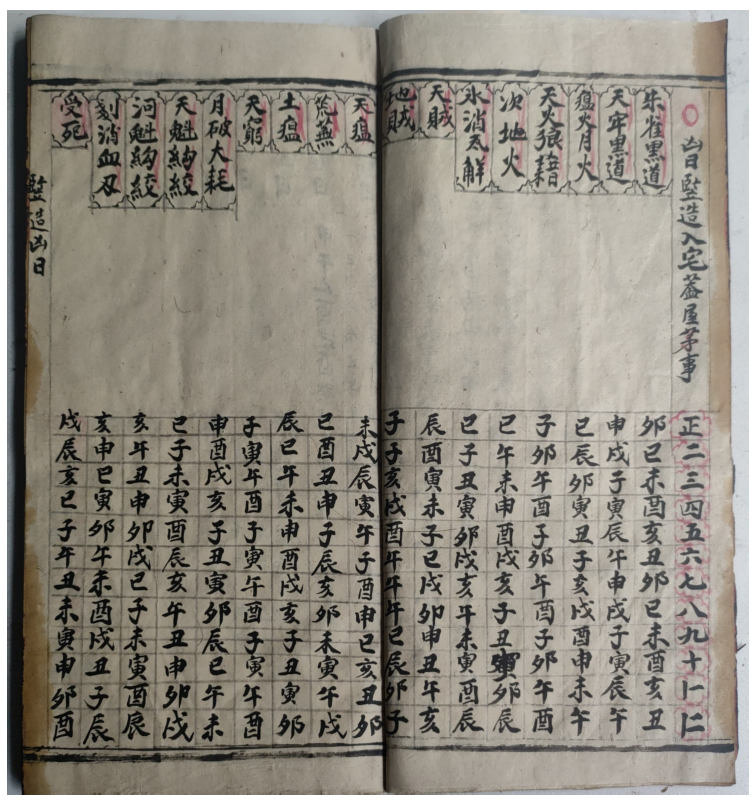 ○凶日竪造入宅蓋屋茅事 正二三四五六七八九十十一十二
朱雀黑道 卯巳未酉亥丑卯巳未酉亥丑
天牢黑道 申戌子寅辰午申戌子寅辰午
瘟火月火 巳辰卯寅丑子亥戌酉申未午
天火狼藉 子卯午酉子卯午酉子卯午酉
次地火 巳午未申酉戌亥子丑寅卯辰
氷消瓦觧 巳子丑寅卯戌亥午未寅酉辰
天賊 辰酉寅未子巳戌卯申丑午亥
地賊 子子亥戌酉午午午巳辰卯子
天瘟 未戌辰寅午子酉申巳亥丑卯
荒蕪 巳酉丑申子辰亥卯未寅午戌
土瘟 辰巳午未申酉戌亥子丑寅卯
天窮 子寅午酉子寅午酉子寅午酉
月破大耗 申酉戌亥子丑寅卯辰巳午未
天魁絢絞 巳子未寅酉辰亥午丑申卯戌
河魁絢絞 亥午丑申卯戌巳子未寅酉辰
刬消血刃 亥申巳寅卯午未酉戌丑子辰
受死 戌辰亥巳子午丑未寅申卯酉
竪造凶日